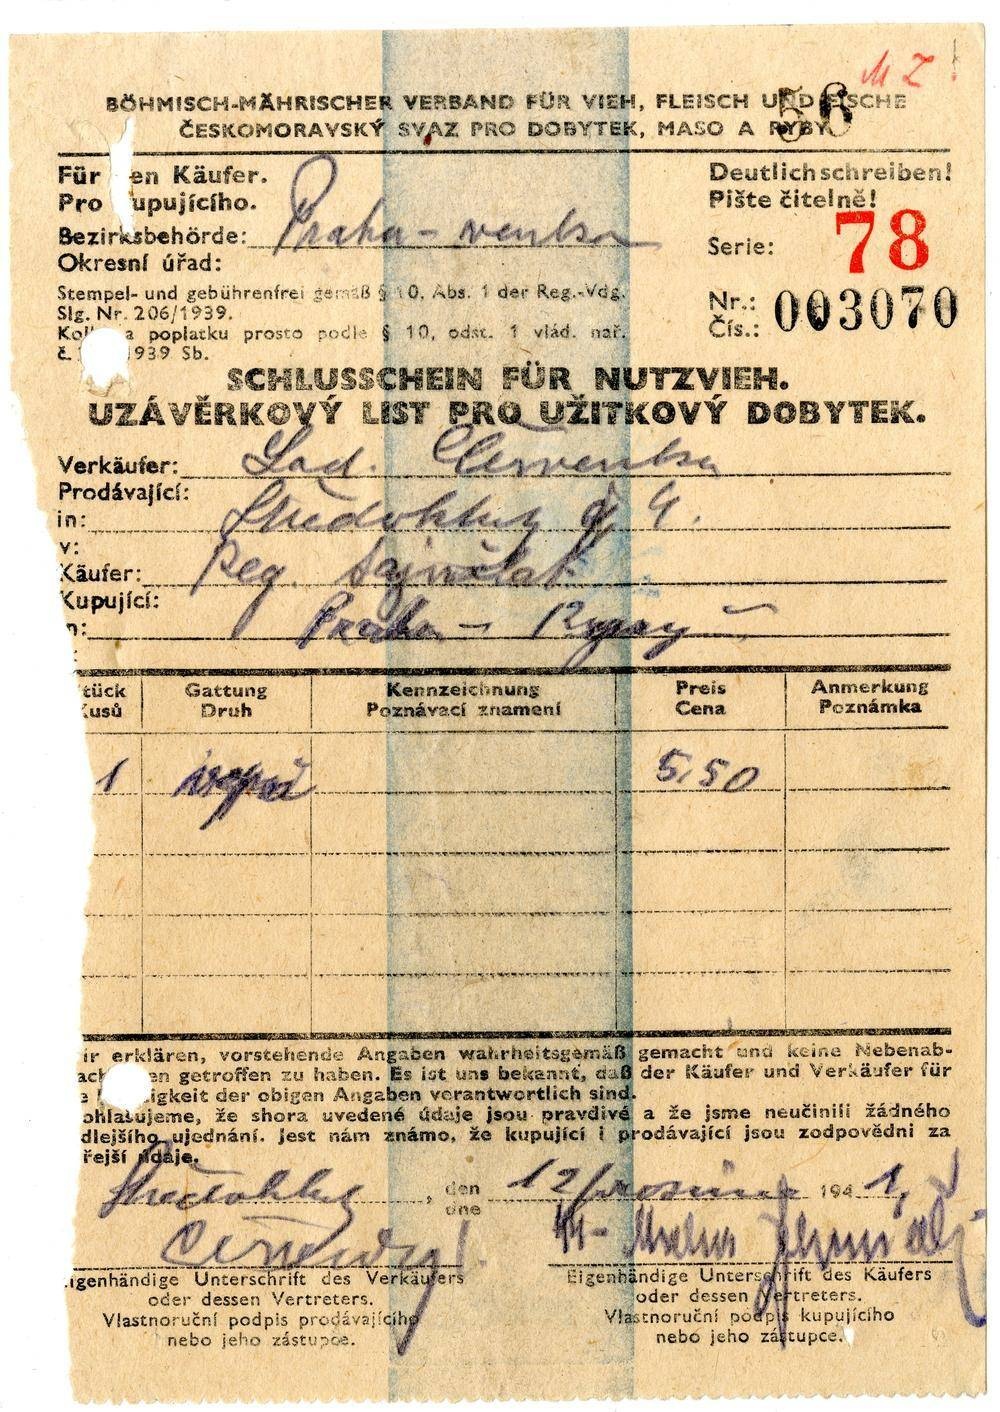 M Z
BÖHMISCH-MÄHRISCHER VERBAND FÜR VIEH, FLEISCH UND FISCHE
56
ČESKOMORAVSKÝ SVAZ PRO DOBYTEK, MASO A RYBY
Für en Käufer.
Pro upujícího.
Deutlich schreiben!
Pište čitelně!
Bezirksbehörde: Praha - venkov
Okresní úřad:
Serie: 78
Stempel- und gebührenfrei gemäß § 10, Abs. 1 der Reg.-Vdg.
Slg. Nr. 206/1939.
Kol a poplatku prosto podle § 10, odst. 1 vlád. nař.
č. 1939 Sb.
Nr.: 003070
Čís.:
SCHLUSSCHEIN FÜR NUTZVIEH.
UZÁVĚRKOVÝ LIST PRO UŽITKOVÝ DOBYTEK.
Verkäufer: Lad. Červenka
Prodávající:
in: Středokluky č 4.
v:
Käufer: Reg.
Kupující:
n: Praha -
tück Gattung Kennzeichnung Preis Anmerkung
Kusů Druh Poznávací znamení Cena Poznámka
1 vepř 5,50
ir erklären, vorstehende Angaben wahrheitsgemäß gemacht und keine Nebenab-
ach en getroffen zu haben. Es ist uns bekannt, daß der Käufer und Verkäufer für
e igkeit der obigen Angaben verantwortlich sind.
ohlašujeme, že shora uvedené údaje jsou pravdivé a že jsme neučinili žádného
dlejšího ujednání. Jest nám známo, že kupující i prodávající jsou zodpovědni za
řejší údaje.
Středokluky, den 12/prosince 1941,
dne
Eigenhändige Unterschrift des Verkäufers
oder dessen Vertreters.
Vlastnoruční podpis prodávajícího
nebo jeho zástupce.
Eigenhändige Unterschrift des Käufers
oder dessen Vertreters.
Vlastnoruční podpis kupujícího
nebo jeho zástupce.